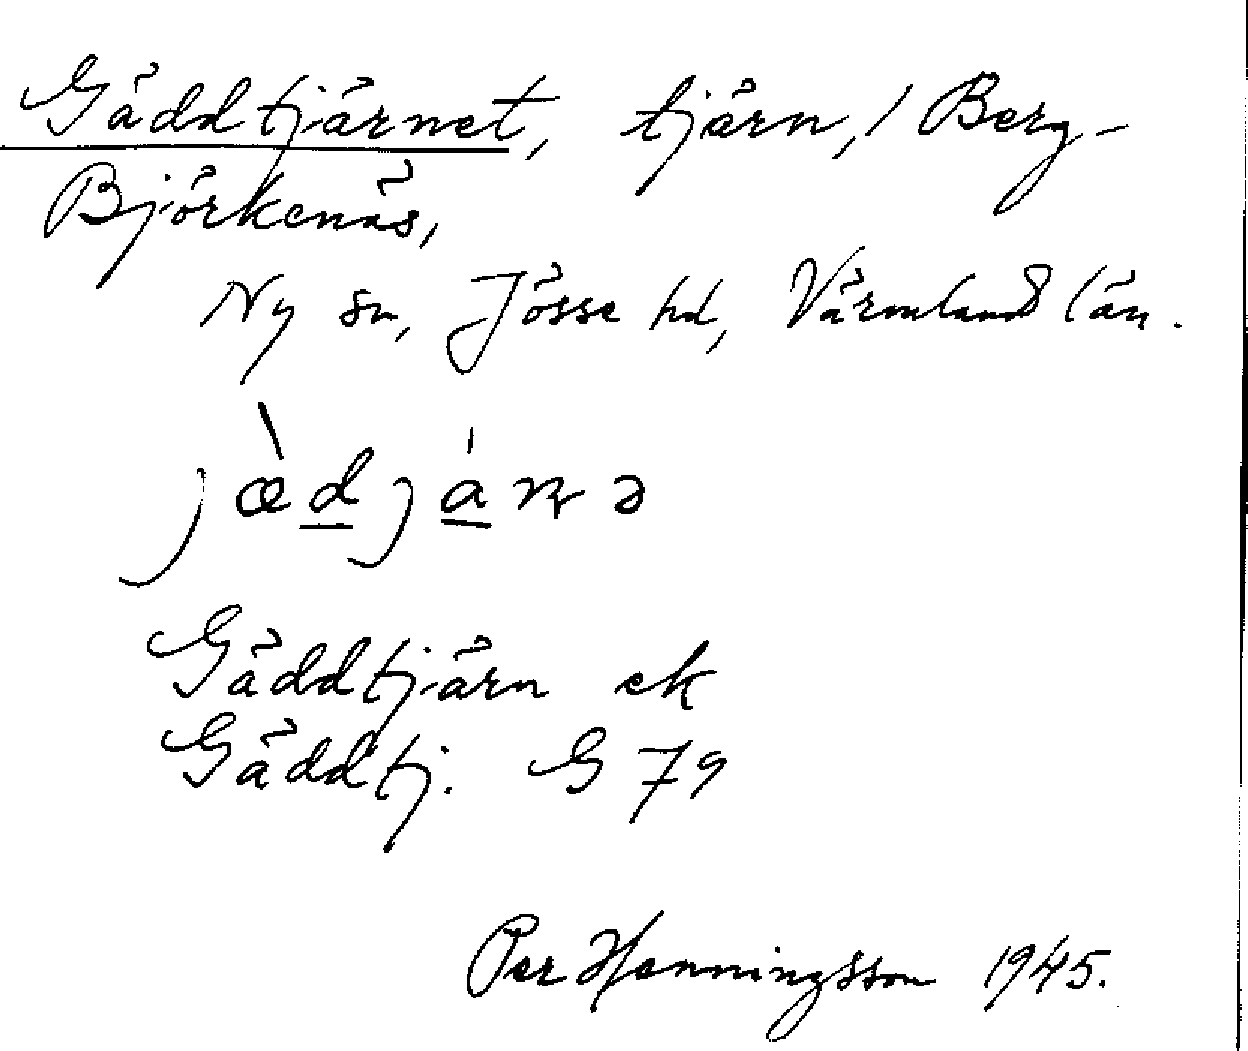 Gäddtjärnet, tjärn, / Berg-
Björkenäs,
Ny sn, Jösse hd, Värmlands län.
jæ̀djánə
Gäddtjärn ek
Gäddtj. G 79
Per Henningsson 1945.